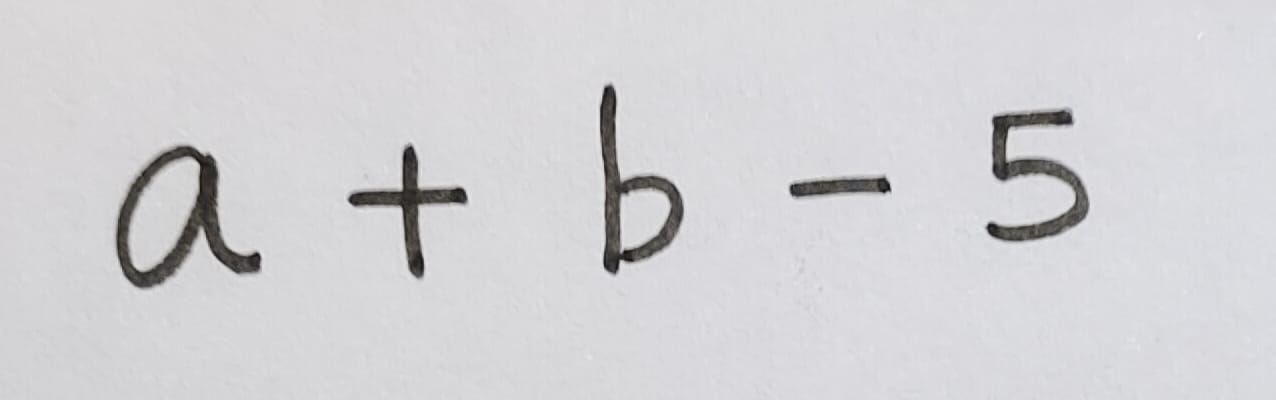 a + b - 5